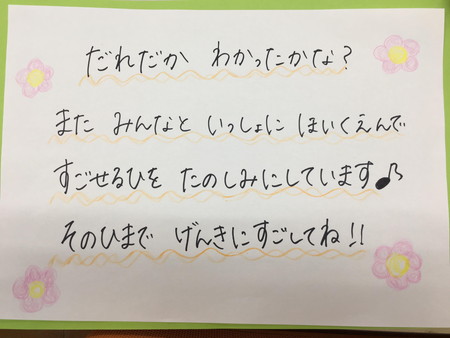 だれだか わかったかな?
また みんなと いっしょに ほいくえんで
すごせるひを たのしみにしています♪
そのひまで げんきにすごしてね!!